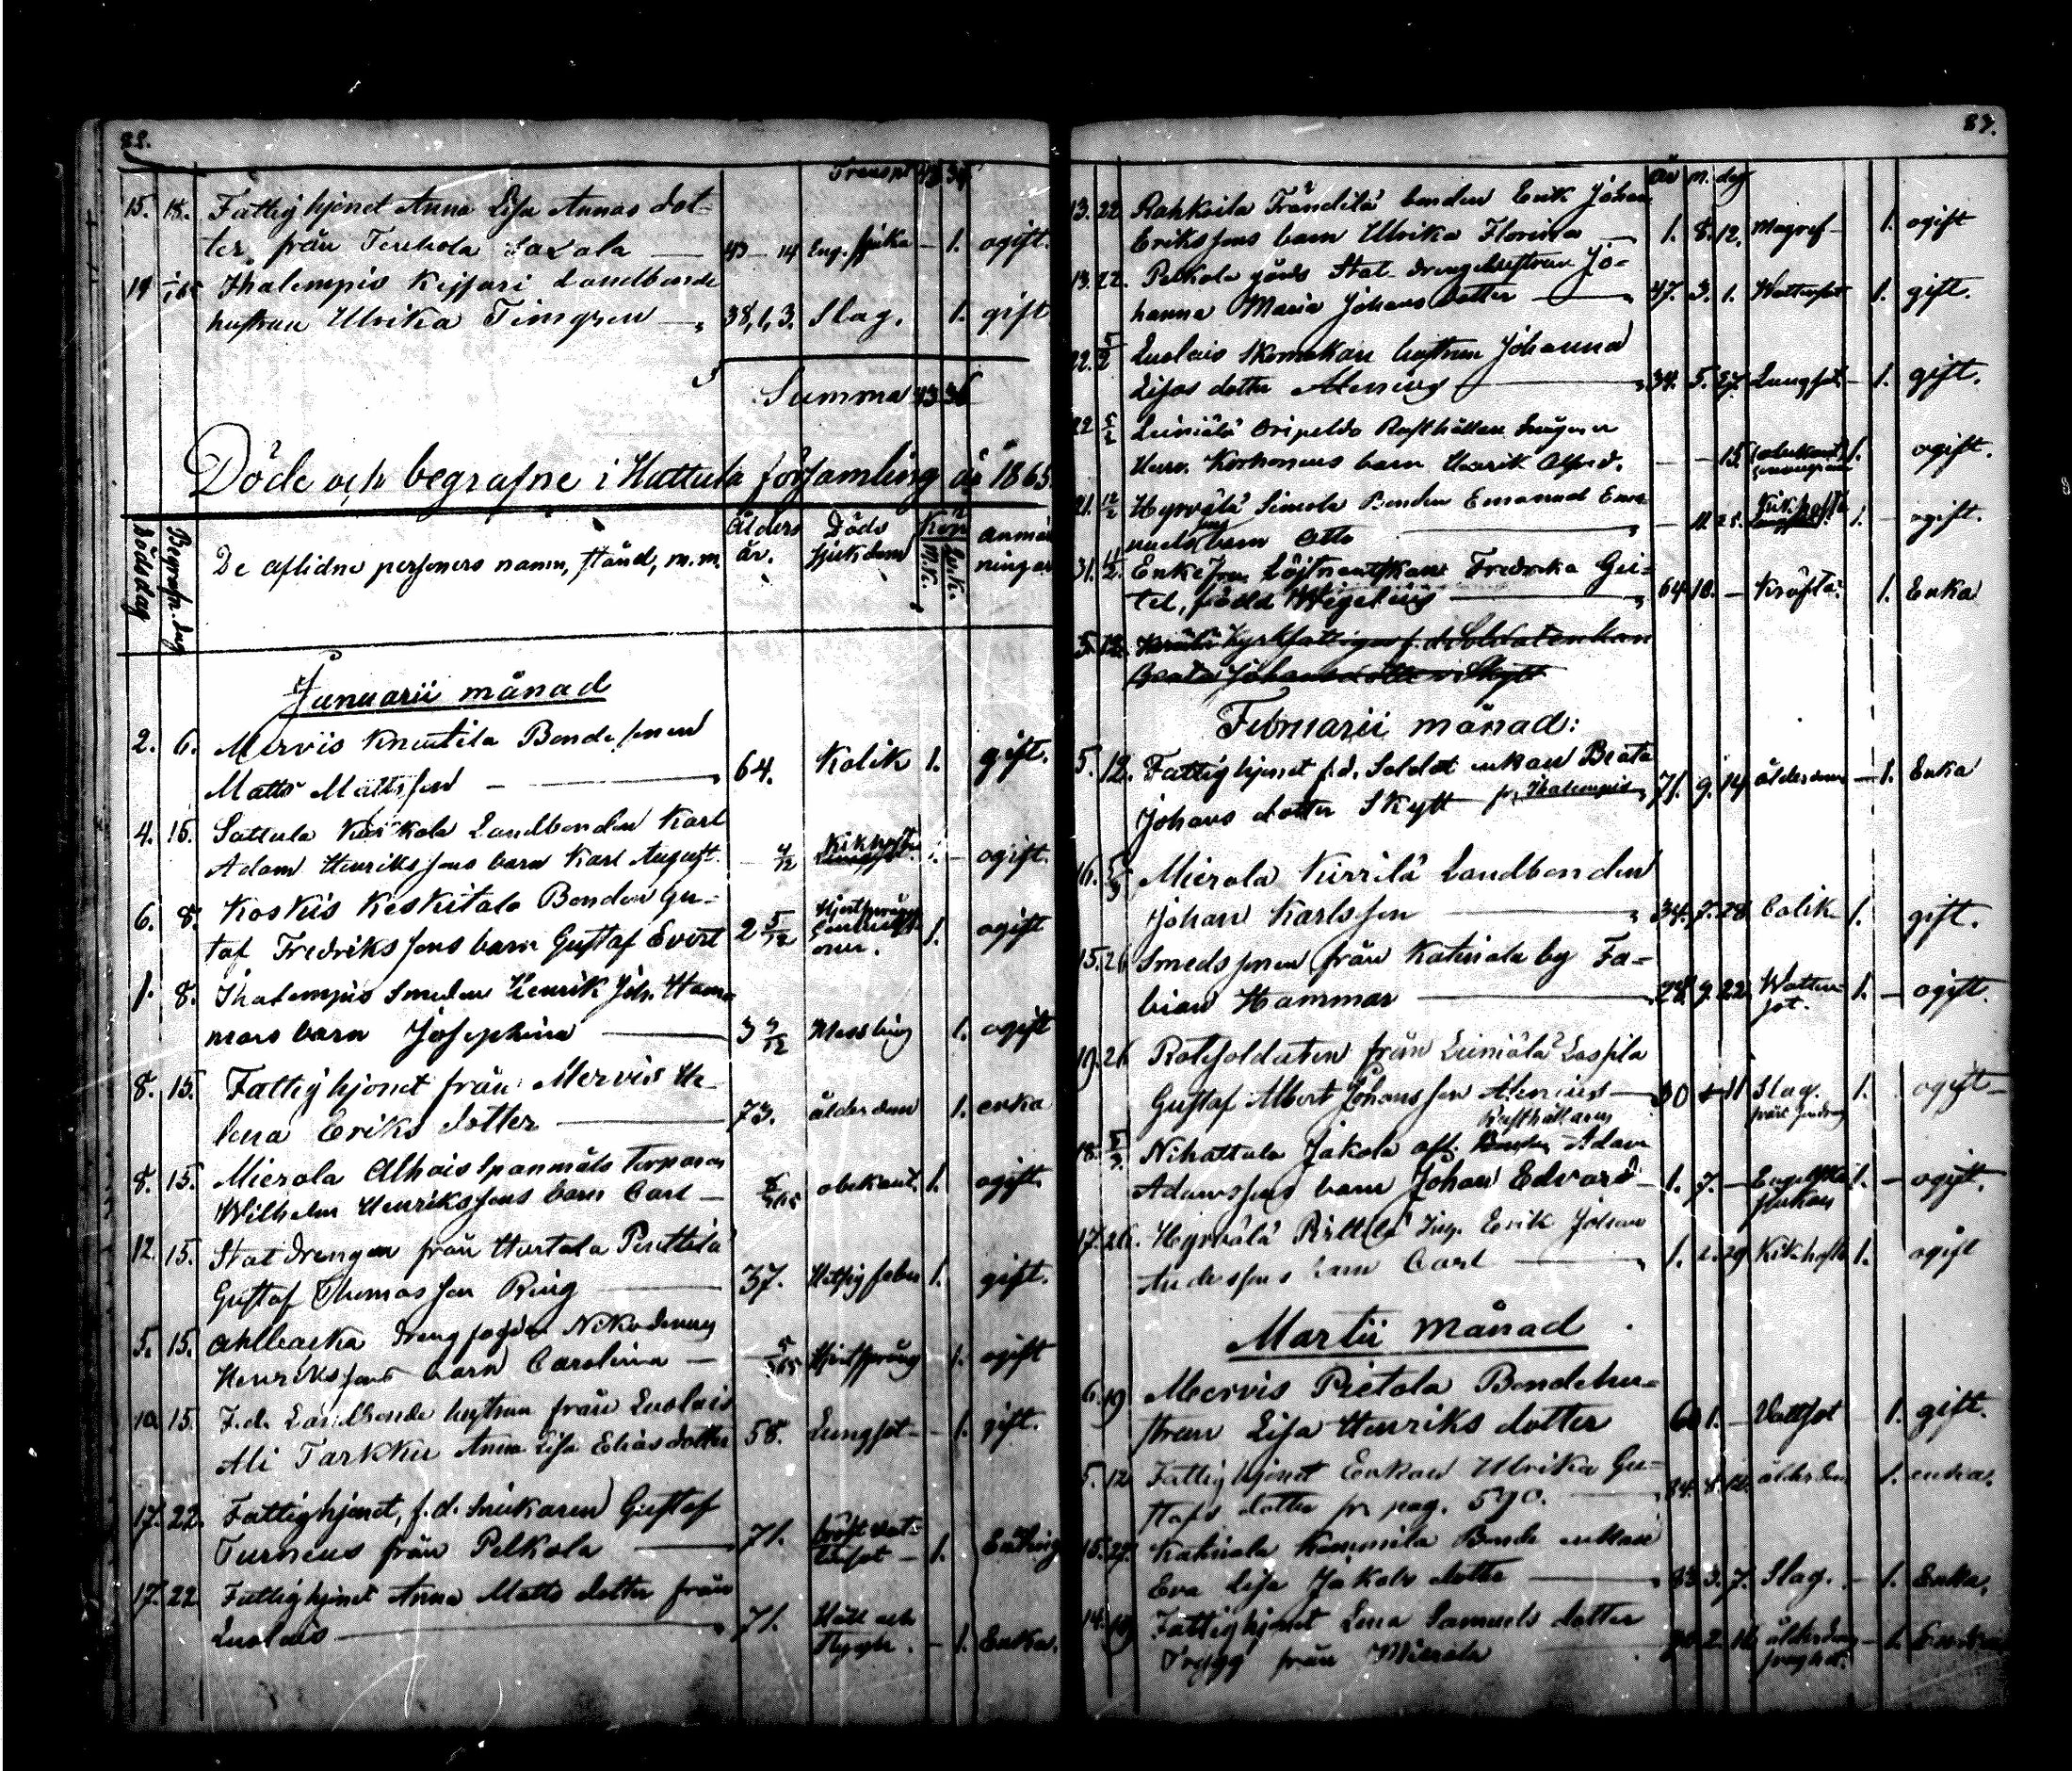 88.
Transpt 43 34
15. 18. Fattighjonet Anna Lisa Annas dot-
ter, från Tenhola — 43 — 14 Eng. sjuka — 1. ogift.
19 Ihalempis Keijsari Landbonde
hustrun Ulrika Timgren — 38, 1, 3. Slag. 1. gift
Summa 43 36
Döde och begrafne i Hattula församling år 1865
Dödsdag Begrafn. dag De aflidne personers namn, stånd, m.m. Ålders år. Döds sjukdom Kön M.K. Qv.K. Anmärkningar
Januarii månad
2. 6. Mervis Knuutila Bonde sonen
Matts Mattsson — 64. Kolik 1. gift.
4. 15. Sattula Landbonden Karl
Adam Henrikssons barn Karl August. — 4/12 Kikhosta 1. — ogift.
6. 8. Koskis Keskitalo Bonden Gu-
taf Fredrikssons barn Gustaf Evert 2 5/12 1. ogift
1. 8. Ihalempis Smeden Henrik Joh. Ham-
mars barn Josephina — 3 Messling 1. ogift
8. 15. Fattighjonet från Mervis He-
lena Eriks dotter — 73. ålderdom 1. enka
8. 15. Mierola Alhais Spanmåls Torparen
Wilhelm Henrikssons barn Carl — obekant. 1. ogift.
12. 15. Statdrengen från Hurtala Penttilä
Gustaf Thomasson Ring — 37. Hitsig feber 1. gift.
5. 15. Ahlbacka Nikodemus
Henrikssons barn Carolina — Hjertsprång 1. ogift
10. 15. F.d. Landbonde hustrun från Luolais
Ali Tarkku Anna Lisa Elias dotter 58. Lungsot — 1. gift.
17. 22. Fattighjonet, f.d. Snickaren Gustaf
Turneus från Pelkola — 71. 1. Enkling
17. 22 Fattighjonet Anna Matts dotter från
Luolais — 71. Håll och
Styng. — 1. Enka.
89.
år m. dag
13. 22 Rahkoila Fränditä bonden Erik Johan
Erikssons barn Ulrika Florina — 1. 8. 12. Magref — 1. ogift
13. 22. Pelkola gårds Stat drengehustrun Jo-
hanna Maria Johans dotter — 37. 3. 1. Wattusot 1. gift.
22. 5/2 Luolais Skomakare hustrun Johanna
Lisas dotter — 34. 5. 27. Lungsot — 1. gift.
22 5/2 Leiniälä Oripeldo Rusthållare
Henr. Korhonens barn Henrik Alfred. — — 15. 1. ogift.
21. 12/2 Hyrvälä Simola Bonden Emanuel Ema-
nuelssons barn Otto — Kikhosta 1. — ogift.
31. Enkefru Löjtnantskan Fredrika Gei-
tel, född Wigelius — 64. 10. — Kräfta. 1. Enka
5. 12. f.d. Soldatenkan
Beata Johansdotter Skytt
Februarii månad:
5. 12. Fattighjonet f.d. Soldat enkan Beata
Johans dotter Skytt fr. Ihalempis 71. 9. 14 ålderdom — 1. Enka
16. 5/3 Mierola Kirrilä Landbonden
Johan Karlsson — 34. 7. 28 Colik 1. gift.
15. 26 Smedssonen från Katinala by Fa-
bian Hammar — 28. 9. 22 Watten-
sot. 1. — ogift.
19. 26 Rotesoldaten från Leiniälä Laspila
Gustaf Albert Johansson Alenius — 30 11 Slag. 1. ogift —
Rusthållaren
18. 5/3. Nihattula Jakola Adam
Adamssons barn Johan Edvard — 1. 7. — Engelska
sjukan 1. — ogift.
17. 26. Hyrvälä Erik Johan
Anderssons barn Carl — 1. 2. 29 Kikhosta 1. ogift
Martii månad
6. 19 Meervis Pietola Bondehu-
strun Lisa Henriks dotter 60 1. — Vattsot 1. gift.
5. 12 Fattighjonet Enkan Ulrika Gu-
stafs dotter fr pag. 590. — 84. 8. ålderdom 1. enka.
Katinala Bonde enkan
Eva Lisa Jakobs dotter — 3. 7. Slag. — 1. Enka.
14. 19 Fattighjonet Lena Samuels dotter
Trygg från Mierola 2. 16 ålderdoms — 1. Enka